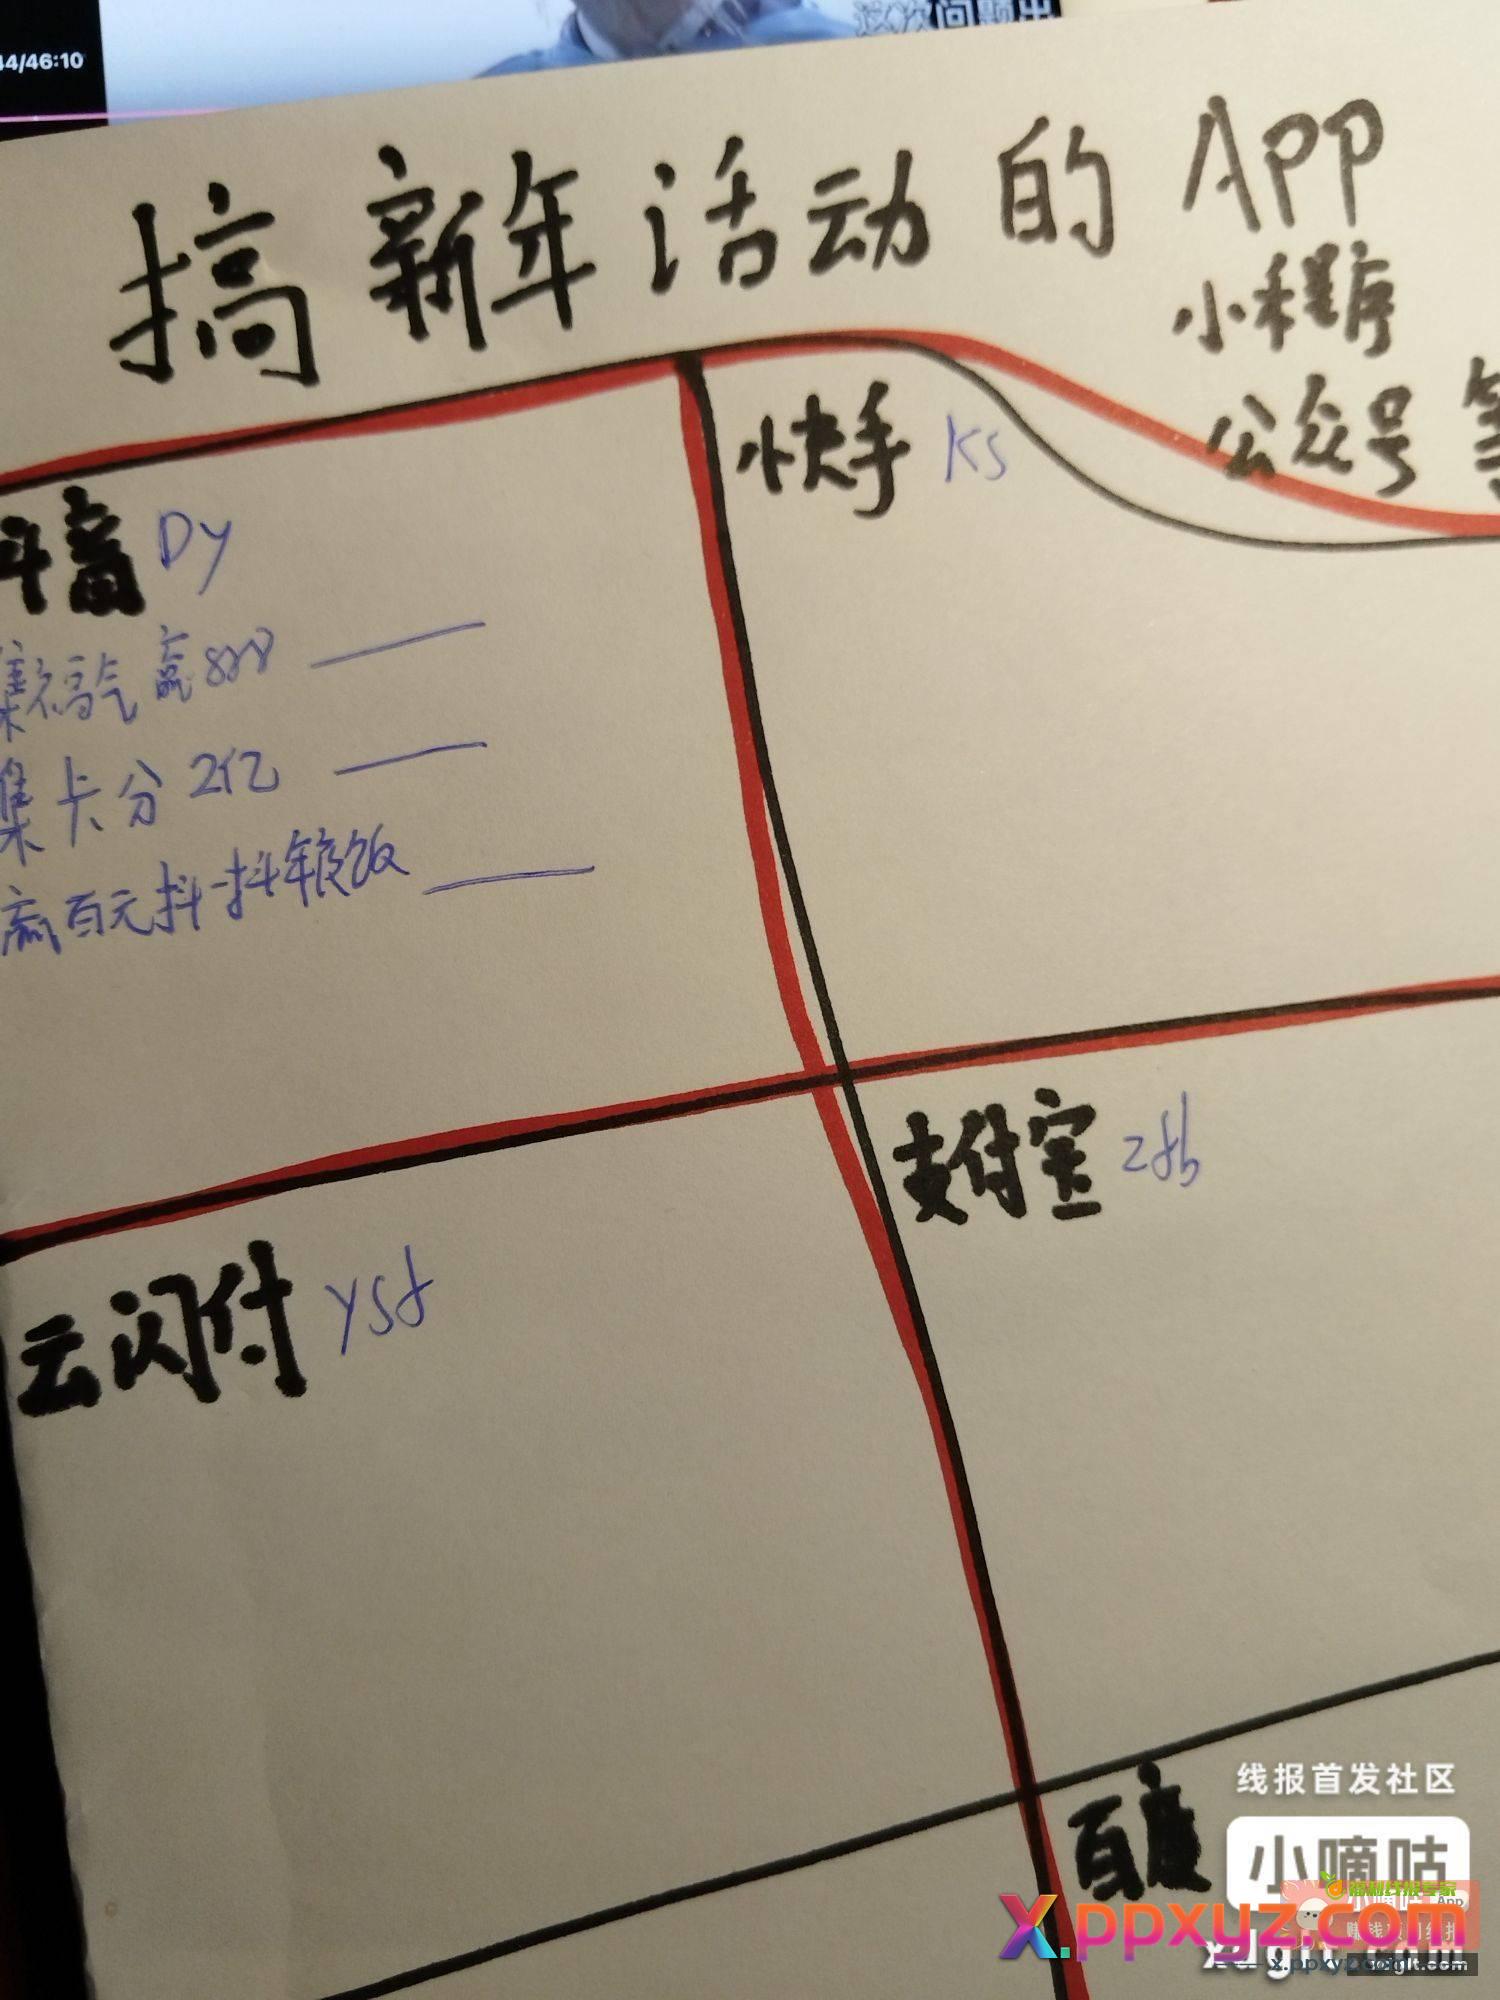 44/46:10
这次问题出
搞新年活动的APP
小程序
公众号等
抖音 DY
集福气赢888
集卡分2亿
赢百元抖一抖年夜饭
快手 KS
云闪付 ysf
支付宝 zfb
百度
线报首发社区
小嘀咕
x.ppxyz.com